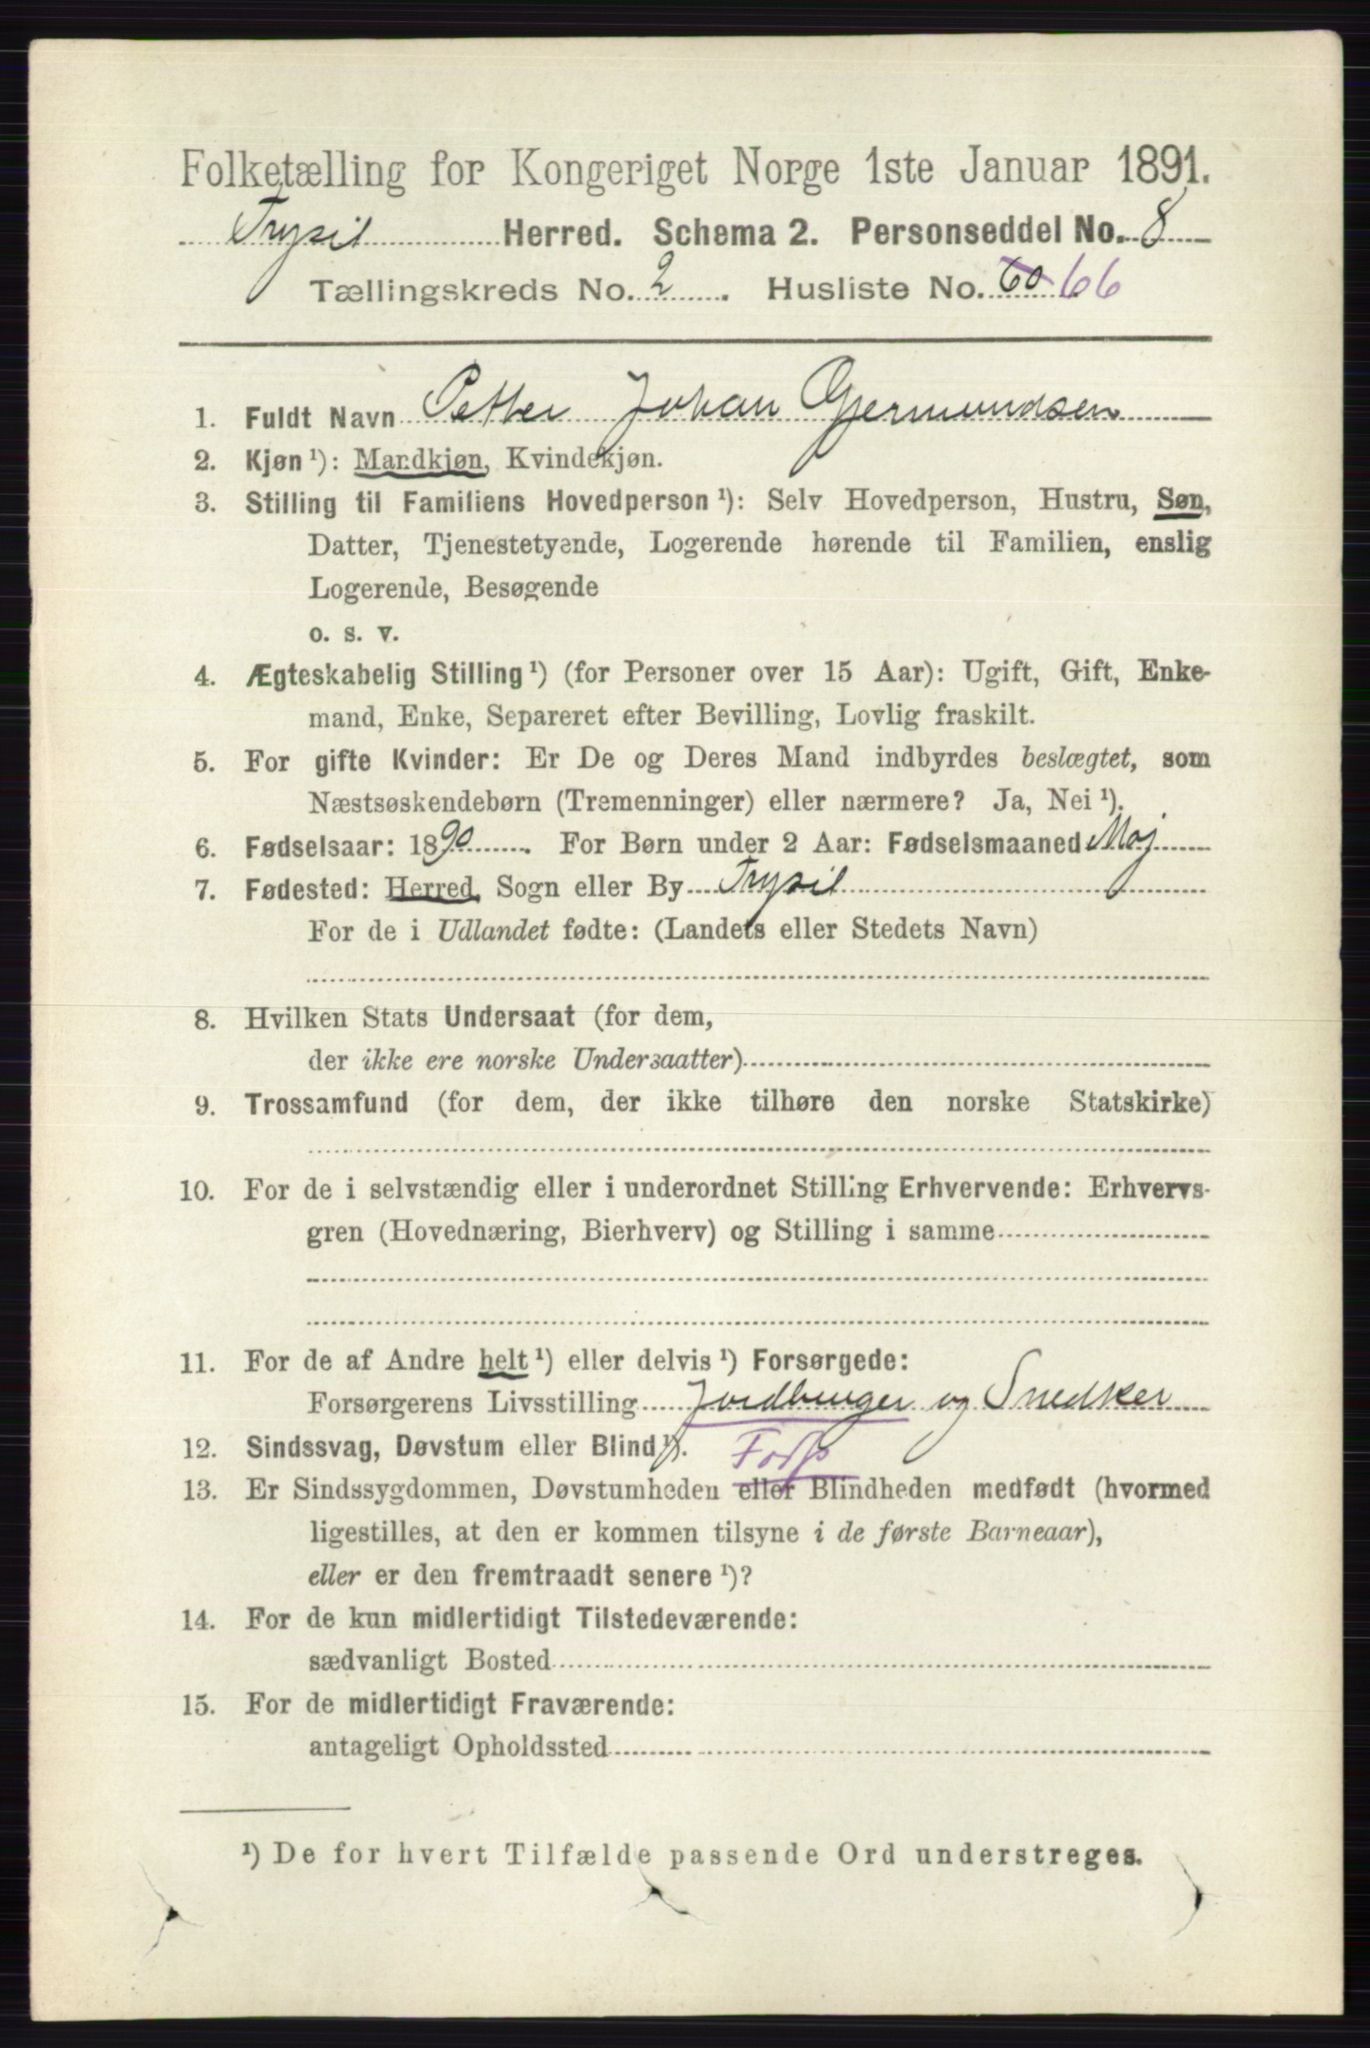 Folketælling for Kongeriget Norge 1ste Januar 1891.
Trysil Herred. Schema 2. Personseddel No. 8
Tællingskreds No. 2. Husliste No. 60 66
1. Fuldt Navn Petter Johan Gjermundsen
2. Kjøn ¹): Mandkjøn, Kvindekjøn.
3. Stilling til Familiens Hovedperson ¹): Selv Hovedperson, Hustru, Søn,
Datter, Tjenestetyende, Logerende hørende til Familien, enslig
Logerende, Besøgende
o. s. v.
4. Ægteskabelig Stilling ¹) (for Personer over 15 Aar): Ugift, Gift, Enke-
mand, Enke, Separeret efter Bevilling, Lovlig fraskilt.
5. For gifte Kvinder: Er De og Deres Mand indbyrdes beslægtet, som
Næstsøskendebørn (Tremenninger) eller nærmere? Ja, Nei ¹).
6. Fødselsaar: 1890. For Børn under 2 Aar: Fødselsmaaned Maj
7. Fødested: Herred, Sogn eller By Trysil
For de i Udlandet fødte: (Landets eller Stedets Navn)
8. Hvilken Stats Undersaat (for dem,
der ikke ere norske Undersaatter)
9. Trossamfund (for dem, der ikke tilhøre den norske Statskirke)
10. For de i selvstændig eller i underordnet Stilling Erhvervende: Erhvervs-
gren (Hovednæring, Bierhverv) og Stilling i samme
11. For de af Andre helt ¹) eller delvis ¹) Forsørgede:
Forsørgerens Livsstilling Jordbruger og Snedker
12. Sindssvag, Døvstum eller Blind ¹). Fods
13. Er Sindssygdommen, Døvstumheden eller Blindheden medfødt (hvormed
ligestilles, at den er kommen tilsyne i de første Barneaar),
eller er den fremtraadt senere ¹)?
14. For de kun midlertidigt Tilstedeværende:
sædvanligt Bosted
15. For de midlertidigt Fraværende:
antageligt Opholdssted
¹) De for hvert Tilfælde passende Ord understreges.